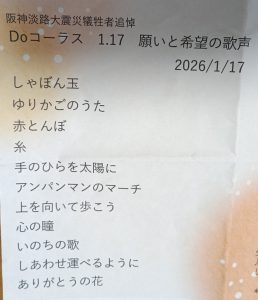 阪神淡路大震災犠牲者追悼
Doコーラス　1.17　願いと希望の歌声
2026/1/17
しゃぼん玉
ゆりかごのうた
赤とんぼ
糸
手のひらを太陽に
アンパンマンのマーチ
上を向いて歩こう
心の瞳
いのちの歌
しあわせ運べるように
ありがとうの花